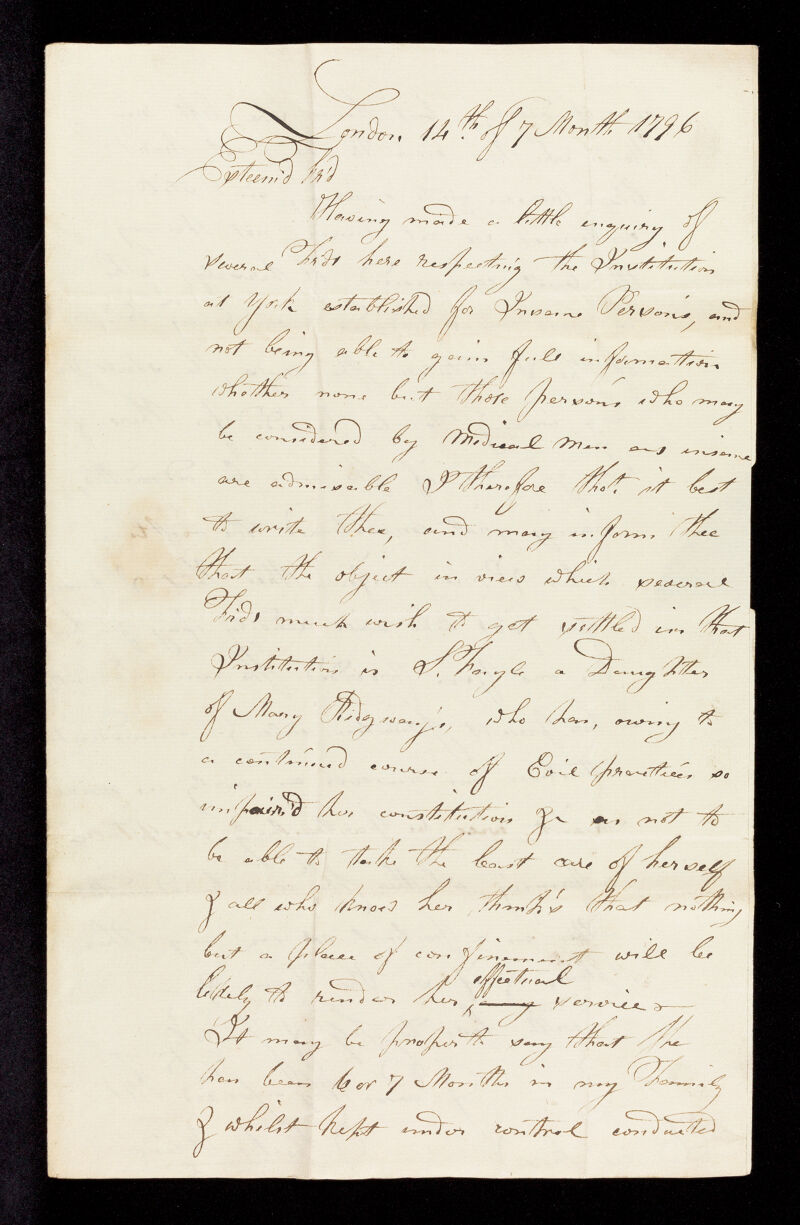 London 14th of 7 Month 1796
Esteem'd Fr'd
Having made a little enquiry of
several Frds here respecting the Institution
at York established for Insane Person's, and
not being able to gain full information
whether none but those person's who may
be considered by Medical Men as insane
are admisable I therefore thot. it best
to write thee, and may inform thee
that the object in view which several
Frds much wish to get settled in that
Institution is S. Fayle a Daughter
of Mary Ridgway's, who has, owing to
a continued course of Evil practices so
impair'd her constitution &c as not to
be able to take the least care of herself
& all who know her think's that nothing
but a place of confinement will be
likely to render her effectual service &
It may be proper to say that she
has been 6 or 7 Months in my Family
& whilst kept under control conducted